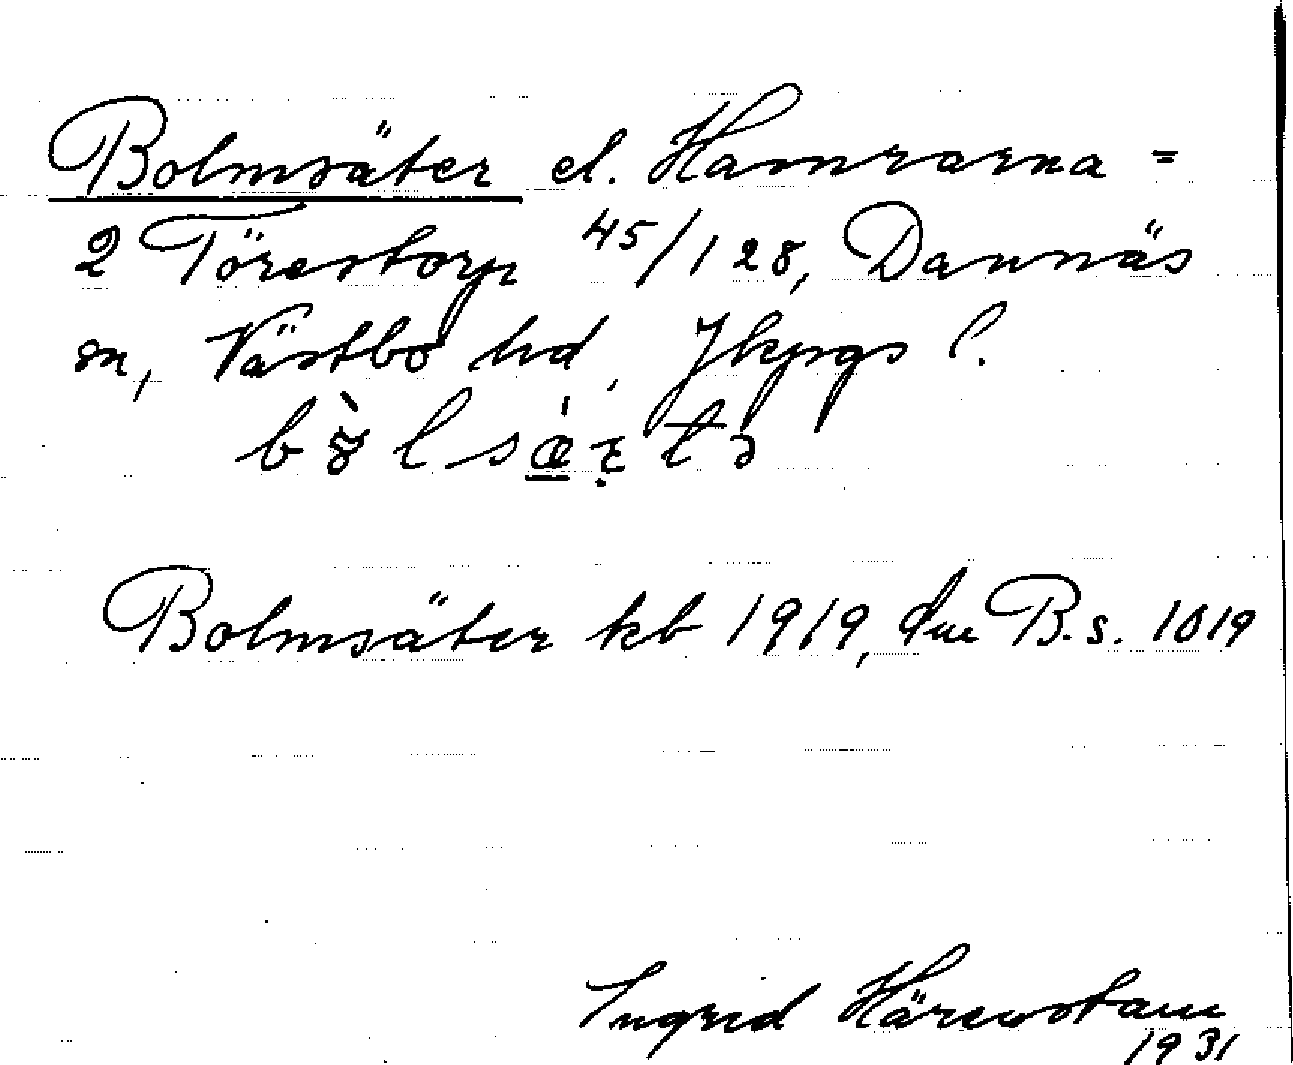 Bolmsäter el. Hamrarna =
2 Törestorp 45/128, Dannäs
sn, Västbo hd, Jkpgs l.
Bolmsäter kb 1919, dne B.s. 1019
Ingrid Härenstam
1931